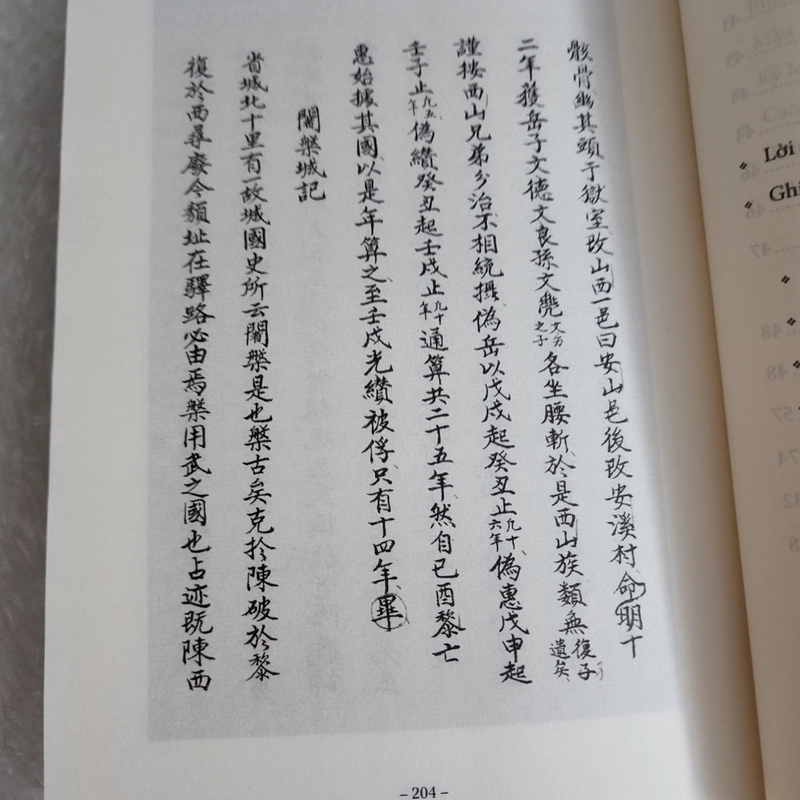 骸骨幽其頭于獄室改山西一邑曰安山邑後改安溪村命明十
二年獲岳子文德文良孫文 之子各坐腰斬於是西山族類無復子遺矣
謹按西山兄弟分治不相統攝偽岳以戊戌起癸丑止凡十六年偽惠戊申起
壬子止凡五年偽纘癸丑起壬戌止凡十年通算共二十五年然自己酉黎亡
惠始據其國以是年算之至壬戌光纘被俘只有十四年畢
闍槃城記
省城北十里有一故城國史所云闍槃是也槃古矣克扵陳破於黎
復於西尋廢今頹址在驛路必由焉槃用武之國也占迹既陳西
– 204 –
Lời
Ghi